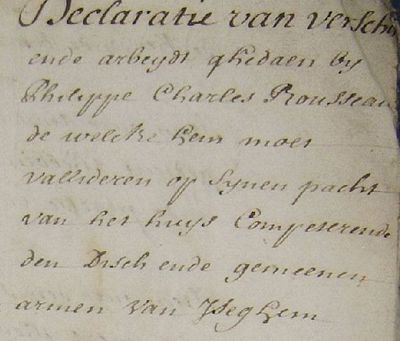 Declaratie van versch
ende arbeydt ghedaen by
Philippe Charles Rousseau
de welcke hem moet
vallideren op synen pacht
van het huys Competerende
den Disch ende gemeenen
armen van Iseghem